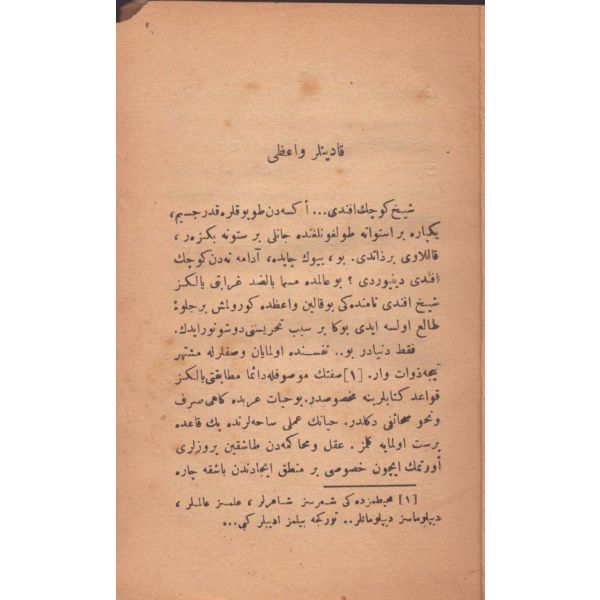 قادینلر واعظی
شیخ كوچك افندی... أكسه‌دن طوبوقلره قدر جسیم،
یكپاره بر استوانه طولغونلغنده جانلی بر ستونه بكزه‌ر،
قاللاوی بر ذاتدی. بو، بیوك چاپده، آدامه نه‌دن كوچك
افندی دینیوردی ؟ بو عالمده مسما بالضد غرابتی یالكز
شیخ افندی نامنده‌كی بو قالین واعظده كورولمش بر جلوۀ
طالع اولسه ایدی بوكا بر سبب تحریسنی دوشونورایدك.
فقط دنیادر بو.. نفسنده اولمایان وصفلرله مشتهر
نیجه ذوات وار. [١] صفتك موصوفله دائما مطابقتی یالكز
قواعد كتابلرینه مخصوصدر. بو حیات عربده كاهی صرف
ونحو صحائفی دكلدر. حیاتك عملی ساحه‌لرنده پك قاعده
پرست اولمایه كلمز . عقل ومحاكمه‌دن طاشقین پروزلری
أورتمك ایچون خصوصی بر منطق ایجادندن باشقه چاره
[١] محیطمزده كی شعرسز شاعرلر ، علمسز عالملر ،
دیپلوماسز دیپلوماتلر.. توركجه بیلمز ادیبلر كبی...